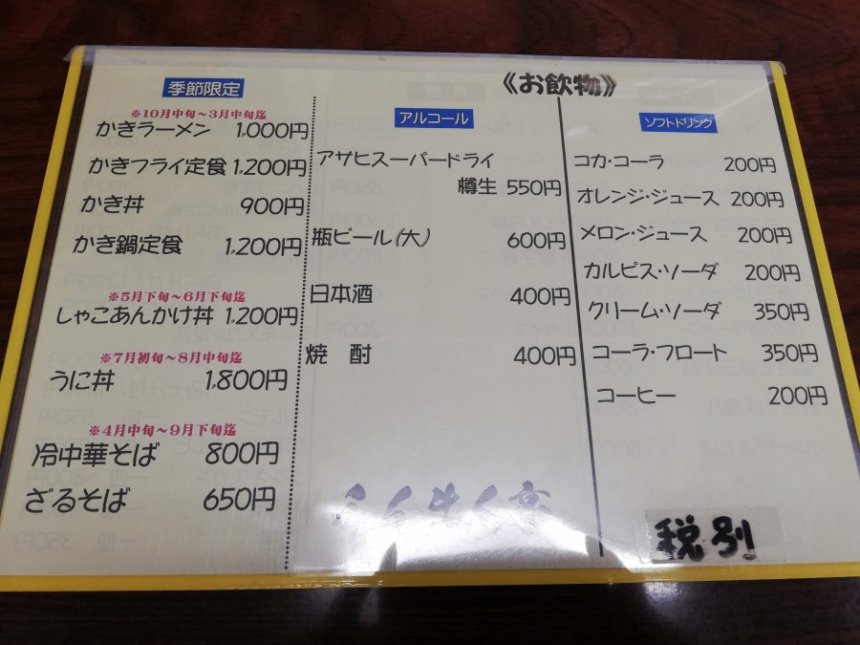 季節限定
※10月中旬～3月中旬迄
かきラーメン 1,000円
かきフライ定食 1,200円
かき丼 900円
かき鍋定食 1,200円
※5月下旬～6月下旬迄
しゃこあんかけ丼 1,200円
※7月初旬～8月中旬迄
うに丼 1,800円
※4月中旬～9月下旬迄
冷中華そば 800円
ざるそば 650円
《お飲物》
アルコール
アサヒスーパードライ
樽生 550円
瓶ビール(大) 600円
日本酒 400円
焼酎 400円
ソフトドリンク
コカ・コーラ 200円
オレンジ・ジュース 200円
メロン・ジュース 200円
カルピス・ソーダ 200円
クリーム・ソーダ 350円
コーラ・フロート 350円
コーヒー 200円
税別